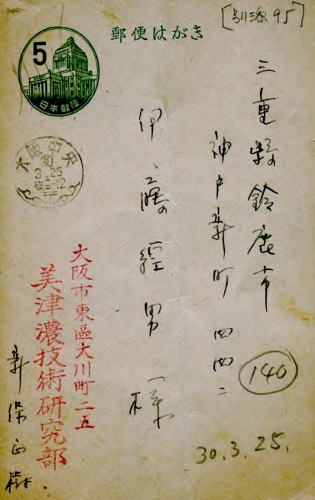 [別添95]
郵便はがき
5
日本郵便
大阪中央
30
3.25
後8-12
三重縣鈴鹿市
神戸新町四四二
伊藤經男様
140
30.3.25.
大阪市東區大川町二五
美津濃技術研究部
新保正樹